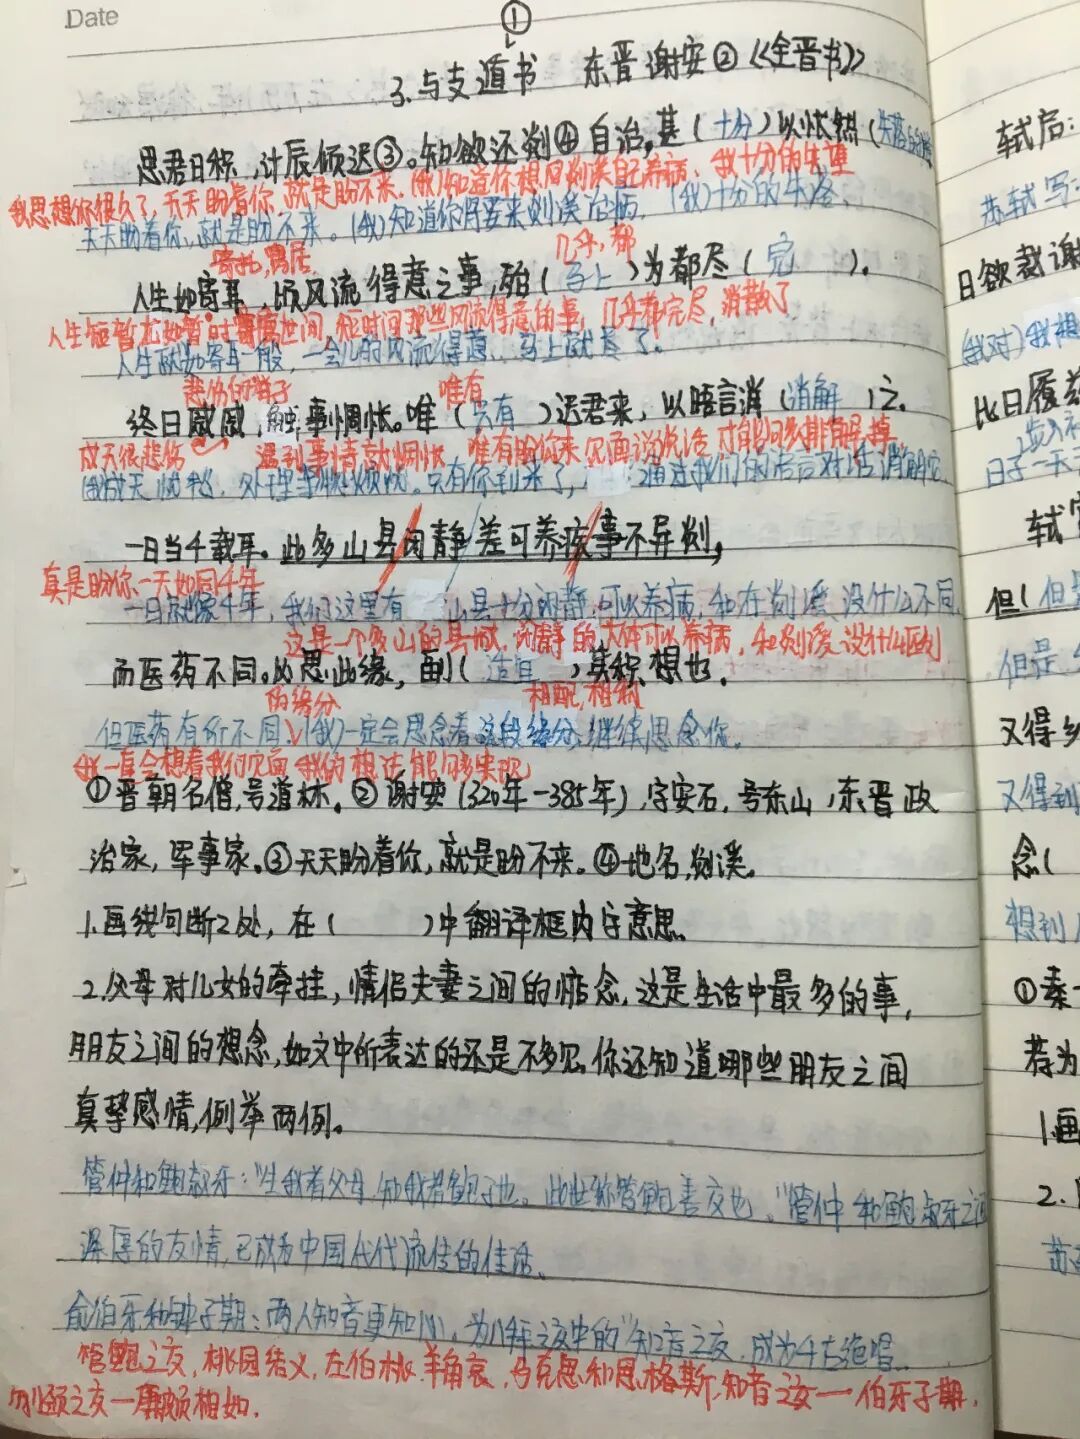 Date
①
3.与支遁书 东晋谢安②《全晋书》
思君日积,计辰倾迟③。知欲还剡④自治,甚(十分)以怅然(失落的
我思想你很久了,天天盼着你,就是盼不来。(我)知道你想回剡溪自己养病,我十分的失望
天天盼着你,就是盼不来。(我)知道你将要来剡溪治病,(我)十分的失落、
寄托,寓居. 几乎,都
人生如寄耳,顷风流得意之事,殆(马上)为都尽(完 ).
人生短暂尤如暂时寄寓世间,短时间那些风流得意的事,几乎都完尽,消散了
人生就如寄耳一般,一会儿的风流得意、马上就尽了.
悲伤的样子 唯有
终日慼慼,触事惆怅。唯(只有 )迟君来,以晤言消(消解 )之.
成天很悲伤 遇到事情就惆怅 唯有盼你来见面说说话才能够排解掉
(我)成天忧愁,处理事物烦忧。只有你到来了,通过我们的语言对话消解它
一日当千载耳。此多山县闲静差可养疾事不异剡,
真是盼你一天如同千年
一日就像千年,我们这里有 山县十分闲静,可以养病,和在剡溪没什么不同
这是一个多山的县城,闲静的大体可以养病,和剡溪没什么区别
而医药不同。必思此缘,副(适宜 )其积想也.
的缘分 相配,相称
但医药有所不同.(我)一定会思念着这段缘分,继续思念你.
我一直会想着我们见面 我的想法能够实现
①晋朝名僧,号道林.②谢安(320年-385年),字安石,号东山,东晋政
治家,军事家.③天天盼着你,就是盼不来.④地名,剡溪.
1.画线句断2处,在( )中翻译框内字意思.
2.父母对儿女的牵挂,情侣夫妻之间的惦念,这是生活中最多的事,
朋友之间的想念,如文中所表达的还是不多见.你还知道哪些朋友之间
真挚感情,例举两例。
管仲和鲍叔牙:"生我者父母,知我者鲍子也.此世称管鲍善交也."管仲和鲍叔牙之间
深厚的友情,已成为中国代代流传的佳话、
俞伯牙和钟子期:两人知音更知心,为八拜之交中的"知音之交,成为千古绝唱..
管鲍之交,桃园结义,左伯桃羊角哀,马克思和恩格斯,知音之交一伯牙子期.
刎颈之交一廉颇相如.
轼启:
苏轼写
日欲裁谢
(我对)我想
比日履兹
日子一天天
轼
但(但是
但是
又得乡
又得到
念(
想到
①秦
荐为
1.画
2.
苏